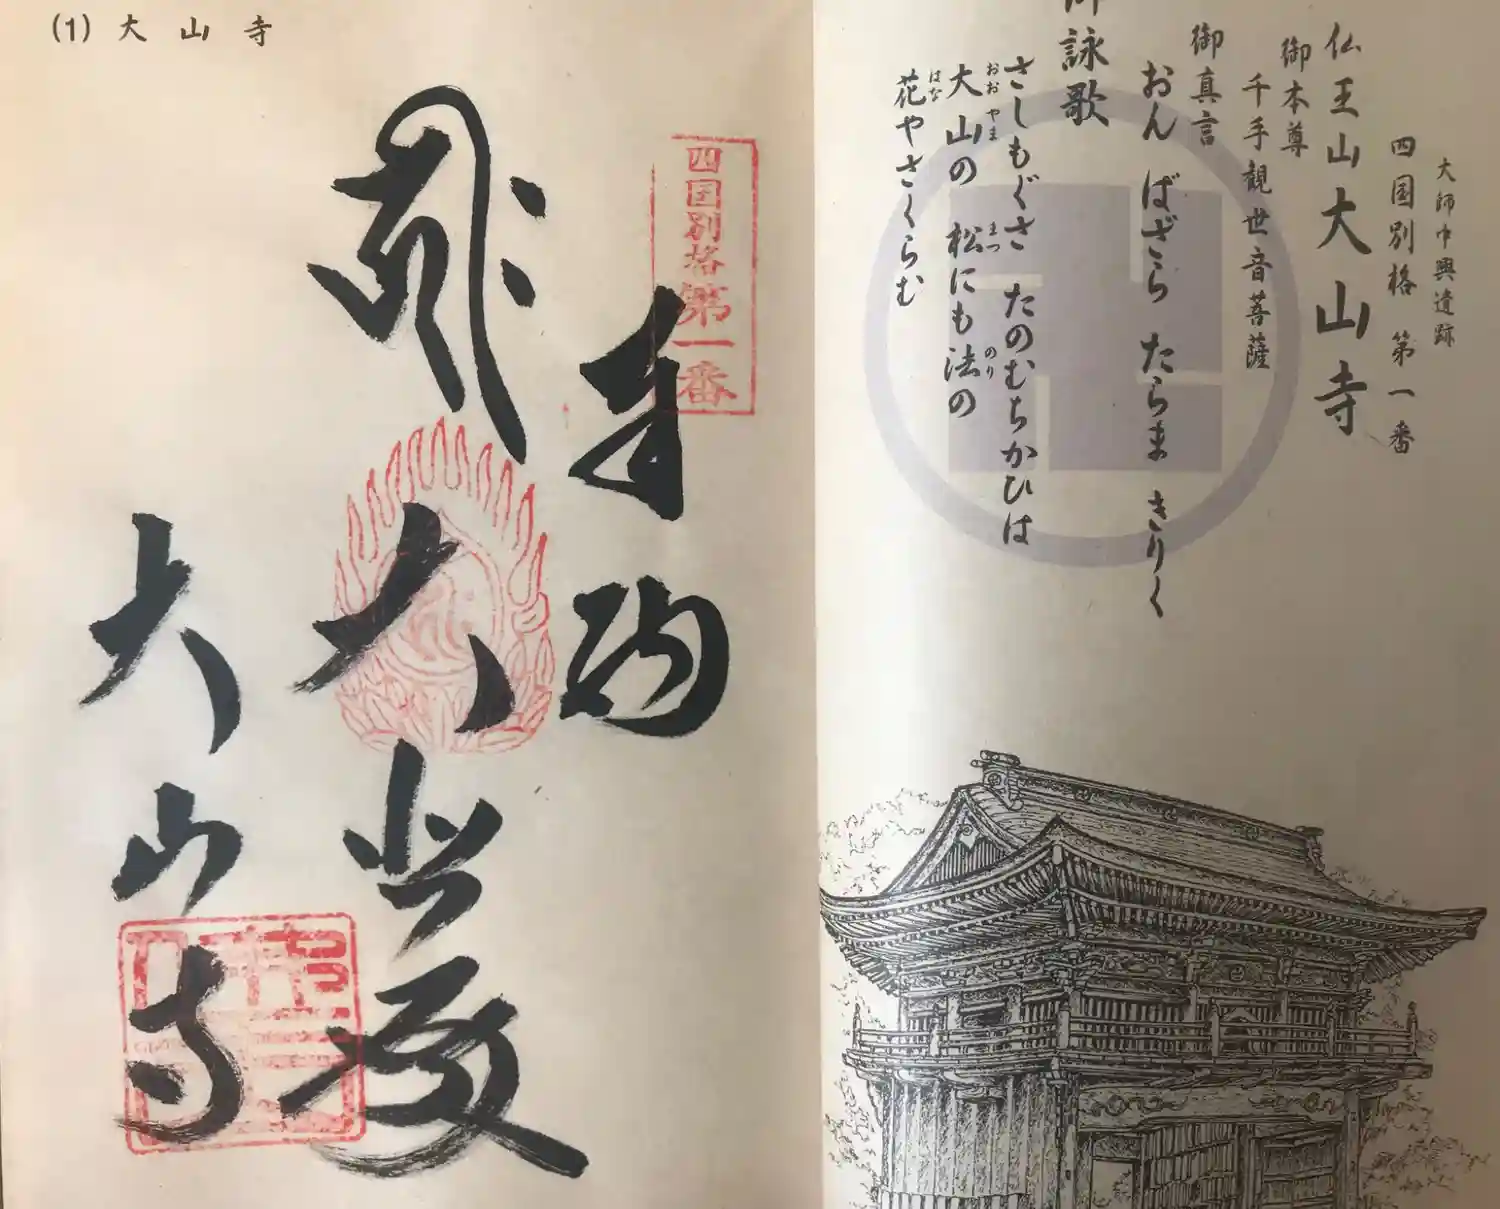 大師中興遺跡
四国別格 第一番
仏王山大山寺
御本尊
千手観世音菩薩
御真言
おん ばざら たらま きりく
御詠歌
さしもぐさ たのむちかひは
おおやま まつ のり
大山の 松にも法の
はな
花やさくらむ
(1) 大山寺
四国別格第一番
奉納
大悲殿
大山寺